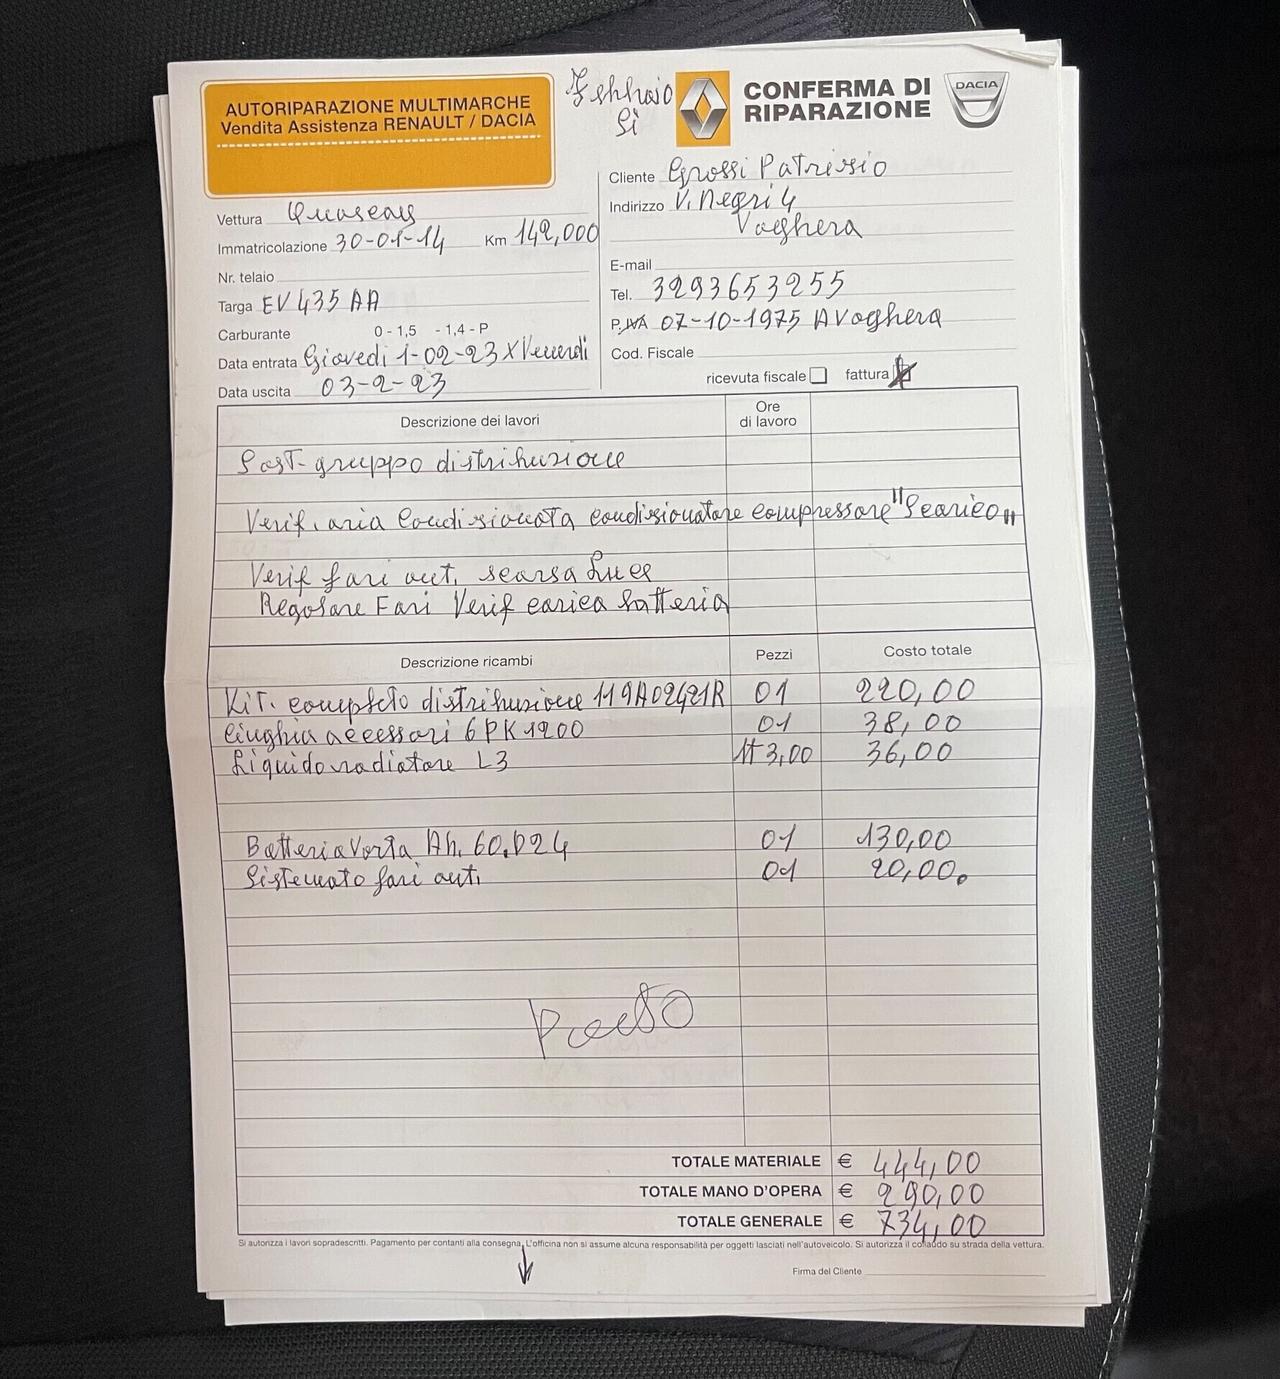 AUTORIPARAZIONE MULTIMARCHE
Vendita Assistenza RENAULT / DACIA
Febbraio
Si
CONFERMA DI
RIPARAZIONE
DACIA
Cliente Grossi Patrizio
Indirizzo V. Negri 4
Voghera
E-mail
Tel. 3293653255
P. IVA 07-10-1975 A Voghera
Cod. Fiscale
ricevuta fiscale fattura
Vettura
Immatricolazione 30-01-14 Km 142,000
Nr. telaio
Targa EV 435 AA
Carburante 0 - 1,5 - 1,4 - P
Data entrata Giovedi 1-02-23 X Venerdi
Data uscita 03-2-23
Descrizione dei lavori
Ore
di lavoro
Sost. gruppo distribuzione
Verif. aria condizionata condizionatore compressore "Scarico"
Verif fari ant. scarsa Luce
Regolare Fari Verif carica batteria
Descrizione ricambi Pezzi Costo totale
Kit. completo distribuzione 119A02421R 01 220,00
Cinghia accessori 6PK1200 01 38,00
Liquido radiatore L3 lt 3,00 36,00
Batteria Varta Ah. 60. D24 01 130,00
Sistemato fari ant. 01 20,00.
TOTALE MATERIALE € 444,00
TOTALE MANO D'OPERA € 290,00
TOTALE GENERALE € 734,00
Si autorizza i lavori sopradescritti. Pagamento per contanti alla consegna. L'officina non si assume alcuna responsabilità per oggetti lasciati nell'autoveicolo. Si autorizza il collaudo su strada della vettura.
Firma del Cliente